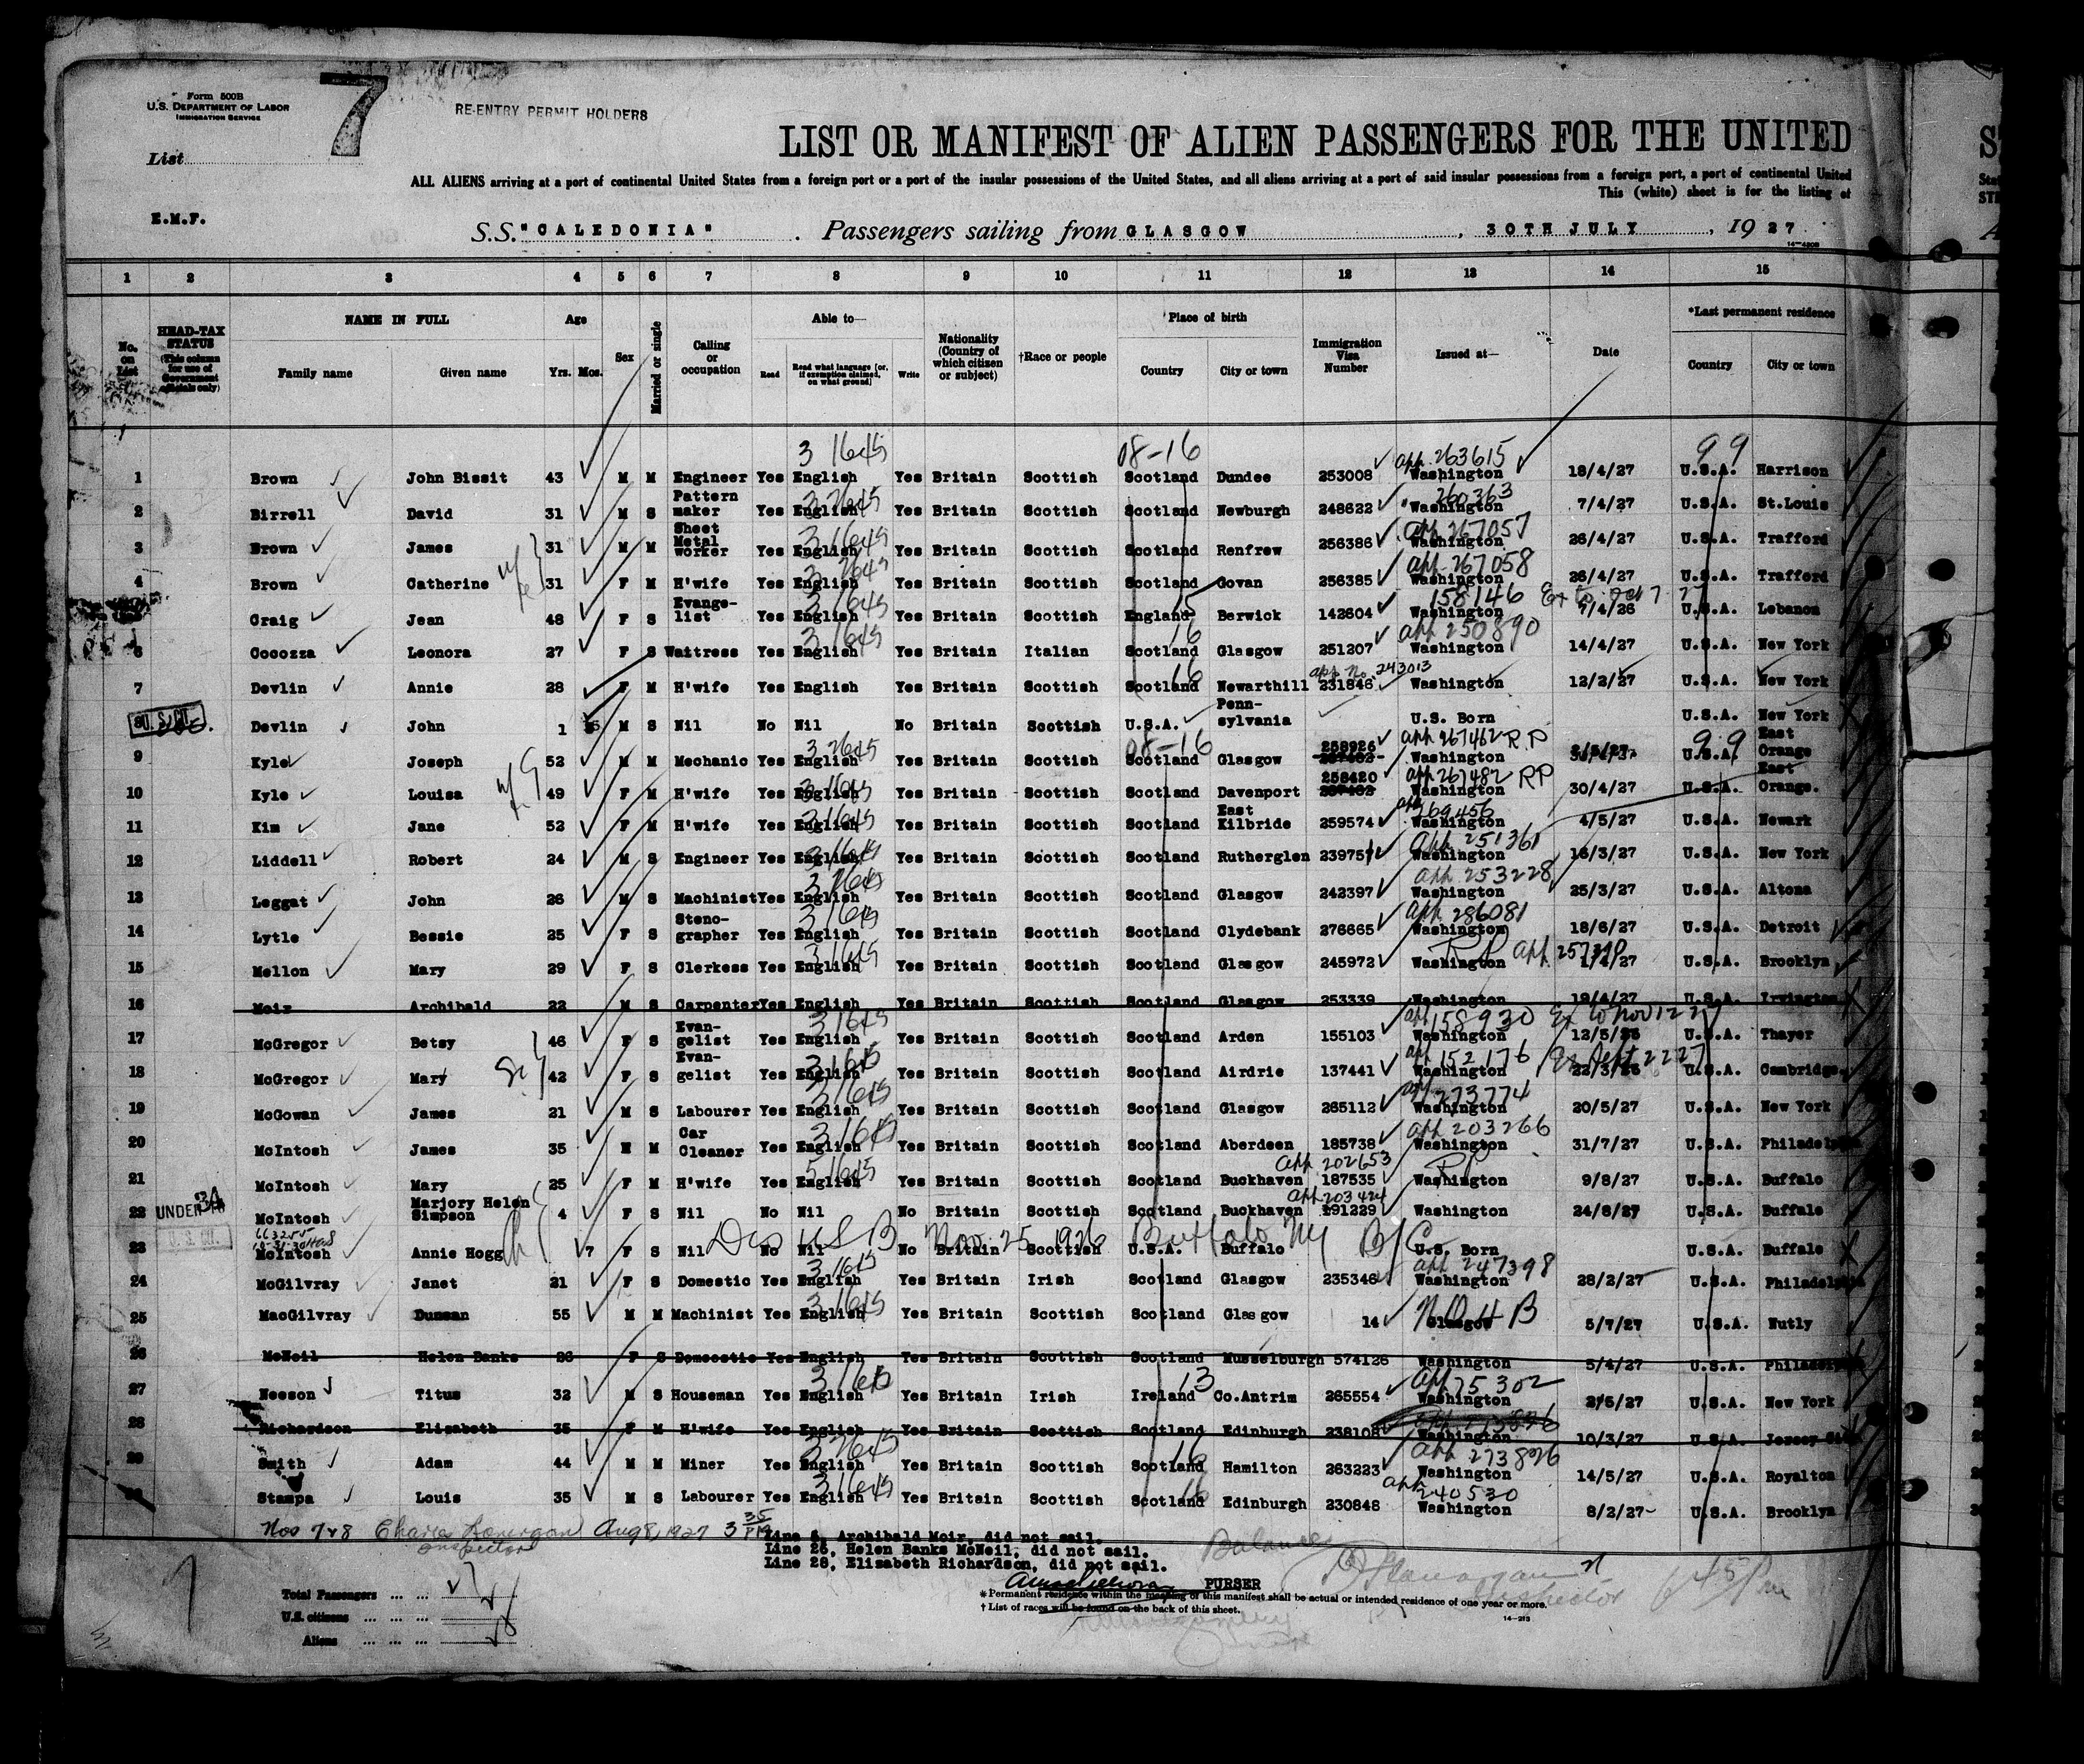 Form 500B
U.S. DEPARTMENT OF LABOR
IMMIGRATION SERVICE
7
RE-ENTRY PERMIT HOLDERS
List
LIST OR MANIFEST OF ALIEN PASSENGERS FOR THE UNITED
ALL ALIENS arriving at a port of continental United States from a foreign port or a port of the insular possessions of the United States, and all aliens arriving at a port of said insular possessions from a foreign port, a port of continental United
This (white) sheet is for the listing of
E.M.F.
S.S. "CALEDONIA" . Passengers sailing from GLASGOW, 30TH JULY, 1927
1 2 3 4 5 6 7 8 9 10 11 12 13 14 15
No. on List
HEAD-TAX STATUS (This column for use of Government officials only)
NAME IN FULL Family name Given name
Age Yrs. Mos.
Sex
Married or single
Calling or occupation
Able to— Read Read what language [or, if exemption claimed, on what ground] Write
Nationality (Country of which citizen or subject)
†Race or people
Place of birth Country City or town
Immigration Visa Number
Issued at—
Date
*Last permanent residence Country City or town
08-16 app. 263615 99
1 Brown John Bissit 43 M M Engineer Yes English Yes Britain Scottish Scotland Dundee 253008 Washington 18/4/27 U.S.A. Harrison
260363
2 Birrell David 31 M S Pattern maker Yes English Yes Britain Scottish Scotland Newburgh 248622 Washington 7/4/27 U.S.A. St.Louis
app. 267057
3 Brown James 31 M M Sheet Metal worker Yes English Yes Britain Scottish Scotland Renfrew 256386 Washington 26/4/27 U.S.A. Trafford
app. 267058
4 Brown Catherine 31 F M H'wife Yes English Yes Britain Scottish Scotland Govan 256385 Washington 26/4/27 U.S.A. Trafford
158146
Craig Jean 48 F S Evangelist Yes English Yes Britain Scottish England Berwick 142604 Washington 7/4/26 U.S.A. Lebanon
16 app. 250890
6 Cocozza Leonora 27 F S Waitress Yes English Yes Britain Italian Scotland Glasgow 251207 Washington 14/4/27 U.S.A. New York
16 app. No. 243013
7 Devlin Annie 28 F M H'wife Yes English Yes Britain Scottish Scotland Newarthill 231846 Washington 12/2/27 U.S.A. New York
Devlin John 1 M S Nil No Nil No Britain Scottish U.S.A. Pennsylvania U.S. Born U.S.A. New York
08-16 app. 267462 RP 99
9 Kyle Joseph 52 M M Mechanic Yes English Yes Britain Scottish Scotland Glasgow 258926 Washington U.S.A. East Orange
app. 267482 RP
10 Kyle Louisa 49 F M H'wife Yes English Yes Britain Scottish Scotland Davenport 258420 Washington 30/4/27 U.S.A. East Orange.
app. 269456
11 Kim Jane 52 F M H'wife Yes English Yes Britain Scottish Scotland East Kilbride 259574 Washington 4/5/27 U.S.A. Newark
app. 251361
12 Liddell Robert 24 M S Engineer Yes English Yes Britain Scottish Scotland Rutherglen 239751 Washington 16/3/27 U.S.A. New York
app. 253228
13 Leggat John 26 M S Machinist Yes English Yes Britain Scottish Scotland Glasgow 242397 Washington 25/3/27 U.S.A. Altona
app. 286081
14 Lytle Bessie 25 F S Stenographer Yes English Yes Britain Scottish Scotland Clydebank 276665 Washington 18/6/27 U.S.A. Detroit
RP app.
15 Mellon Mary 29 F S Clerkess Yes English Yes Britain Scottish Scotland Glasgow 245972 Washington U.S.A. Brooklyn
16 Moir Archibald 22 M S Carpenter Yes English Yes Britain Scottish Scotland Glasgow 253339 Washington 19/4/27 U.S.A. Irvington
app. 158930 Ex to Nov 12 27
17 McGregor Betsy 46 F S Evangelist Yes English Yes Britain Scottish Scotland Arden 155103 Washington 12/5/26 U.S.A. Thayer
app. 152176 Ex Sept 22 27
18 McGregor Mary 42 F S Evangelist Yes English Yes Britain Scottish Scotland Airdrie 137441 Washington 22/3/26 U.S.A. Cambridge
273774
19 McGowan James 21 M S Labourer Yes English Yes Britain Scottish Scotland Glasgow 265112 Washington 20/5/27 U.S.A. New York
app. 203266
20 McIntosh James 35 M M Car Cleaner Yes English Yes Britain Scottish Scotland Aberdeen 185738 Washington 31/7/27 U.S.A. Philadelphia
app. 202653 RP
21 McIntosh Mary 25 F M H'wife Yes English Yes Britain Scottish Scotland Buckhaven 187535 Washington 9/8/27 U.S.A. Buffalo
app. 203424
UNDER
22 McIntosh Marjory Helen Simpson 4 F S Nil No Nil No Britain Scottish Scotland Buckhaven 191229 Washington 24/8/27 U.S.A. Buffalo
Nov. 25 1926 Buffalo NY B/C
23 McIntosh Annie Hogg 7 F S Nil No Nil No Britain Scottish U.S.A. Buffalo U.S. Born U.S.A. Buffalo
app. 247398
24 McGilvray Janet 21 F S Domestic Yes English Yes Britain Irish Scotland Glasgow 235346 Washington 28/2/27 U.S.A. Philadelphia
25 MacGilvray Duncan 55 M M Machinist Yes English Yes Britain Scottish Scotland Glasgow 14 Glasgow 5/7/27 U.S.A. Nutly
26 McNeil Helen Banks 26 F S Domestic Yes English Yes Britain Scottish Scotland Musselburgh 574126 Washington 5/4/27 U.S.A. Philadelphia
13 app. 75302
27 Neeson Titus 32 M S Houseman Yes English Yes Britain Irish Ireland Co.Antrim 265554 Washington 2/5/27 U.S.A. New York
28 Richardson Elizabeth 35 F M H'wife Yes English Yes Britain Scottish Scotland Edinburgh 238108 Washington 10/3/27 U.S.A. Jersey City
16 app. 273826
29 Smith Adam 44 M M Miner Yes English Yes Britain Scottish Scotland Hamilton 263223 Washington 14/5/27 U.S.A. Royalton
16 app. 240530
Stampa Louis 35 M S Labourer Yes English Yes Britain Scottish Scotland Edinburgh 230848 Washington 8/2/27 U.S.A. Brooklyn
Nos 7 & 8 Charles Aug 8, 1927
Inspector
Archibald Moir, did not sail.
Line 26, Helen Banks McNeil, did not sail.
Line 28, Elizabeth Richardson, did not sail.
Balance
Inspector
PURSER
Total Passengers
U.S. citizens
Aliens
* Permanent residence within the meaning of this manifest shall be actual or intended residence of one year or more.
† List of races will be found on the back of this sheet.
14-213